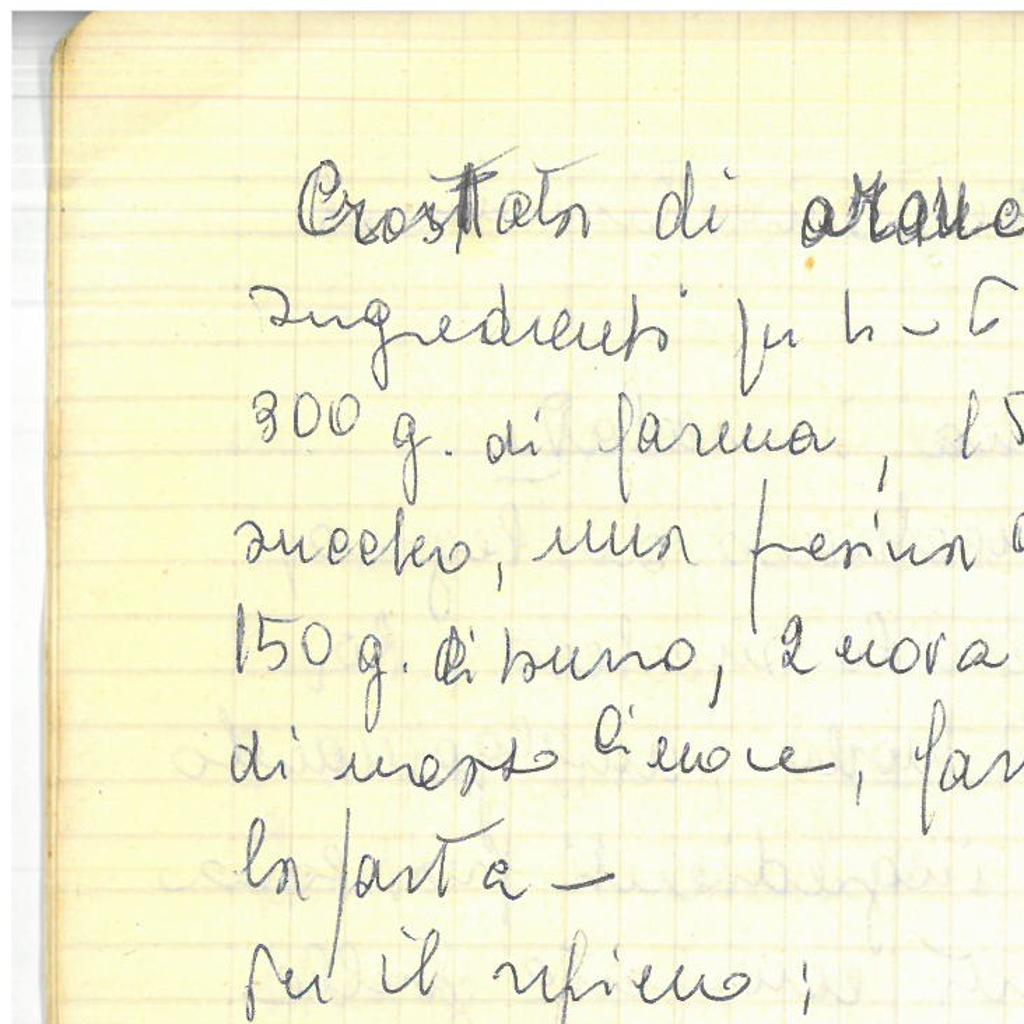 Crostata di aranc
Ingredienti per
300 g. di farina, 15
zucchero, una presina
150 g. di burro, 2 uova
di mezzo limone, far
la pasta —
per il ripieno;